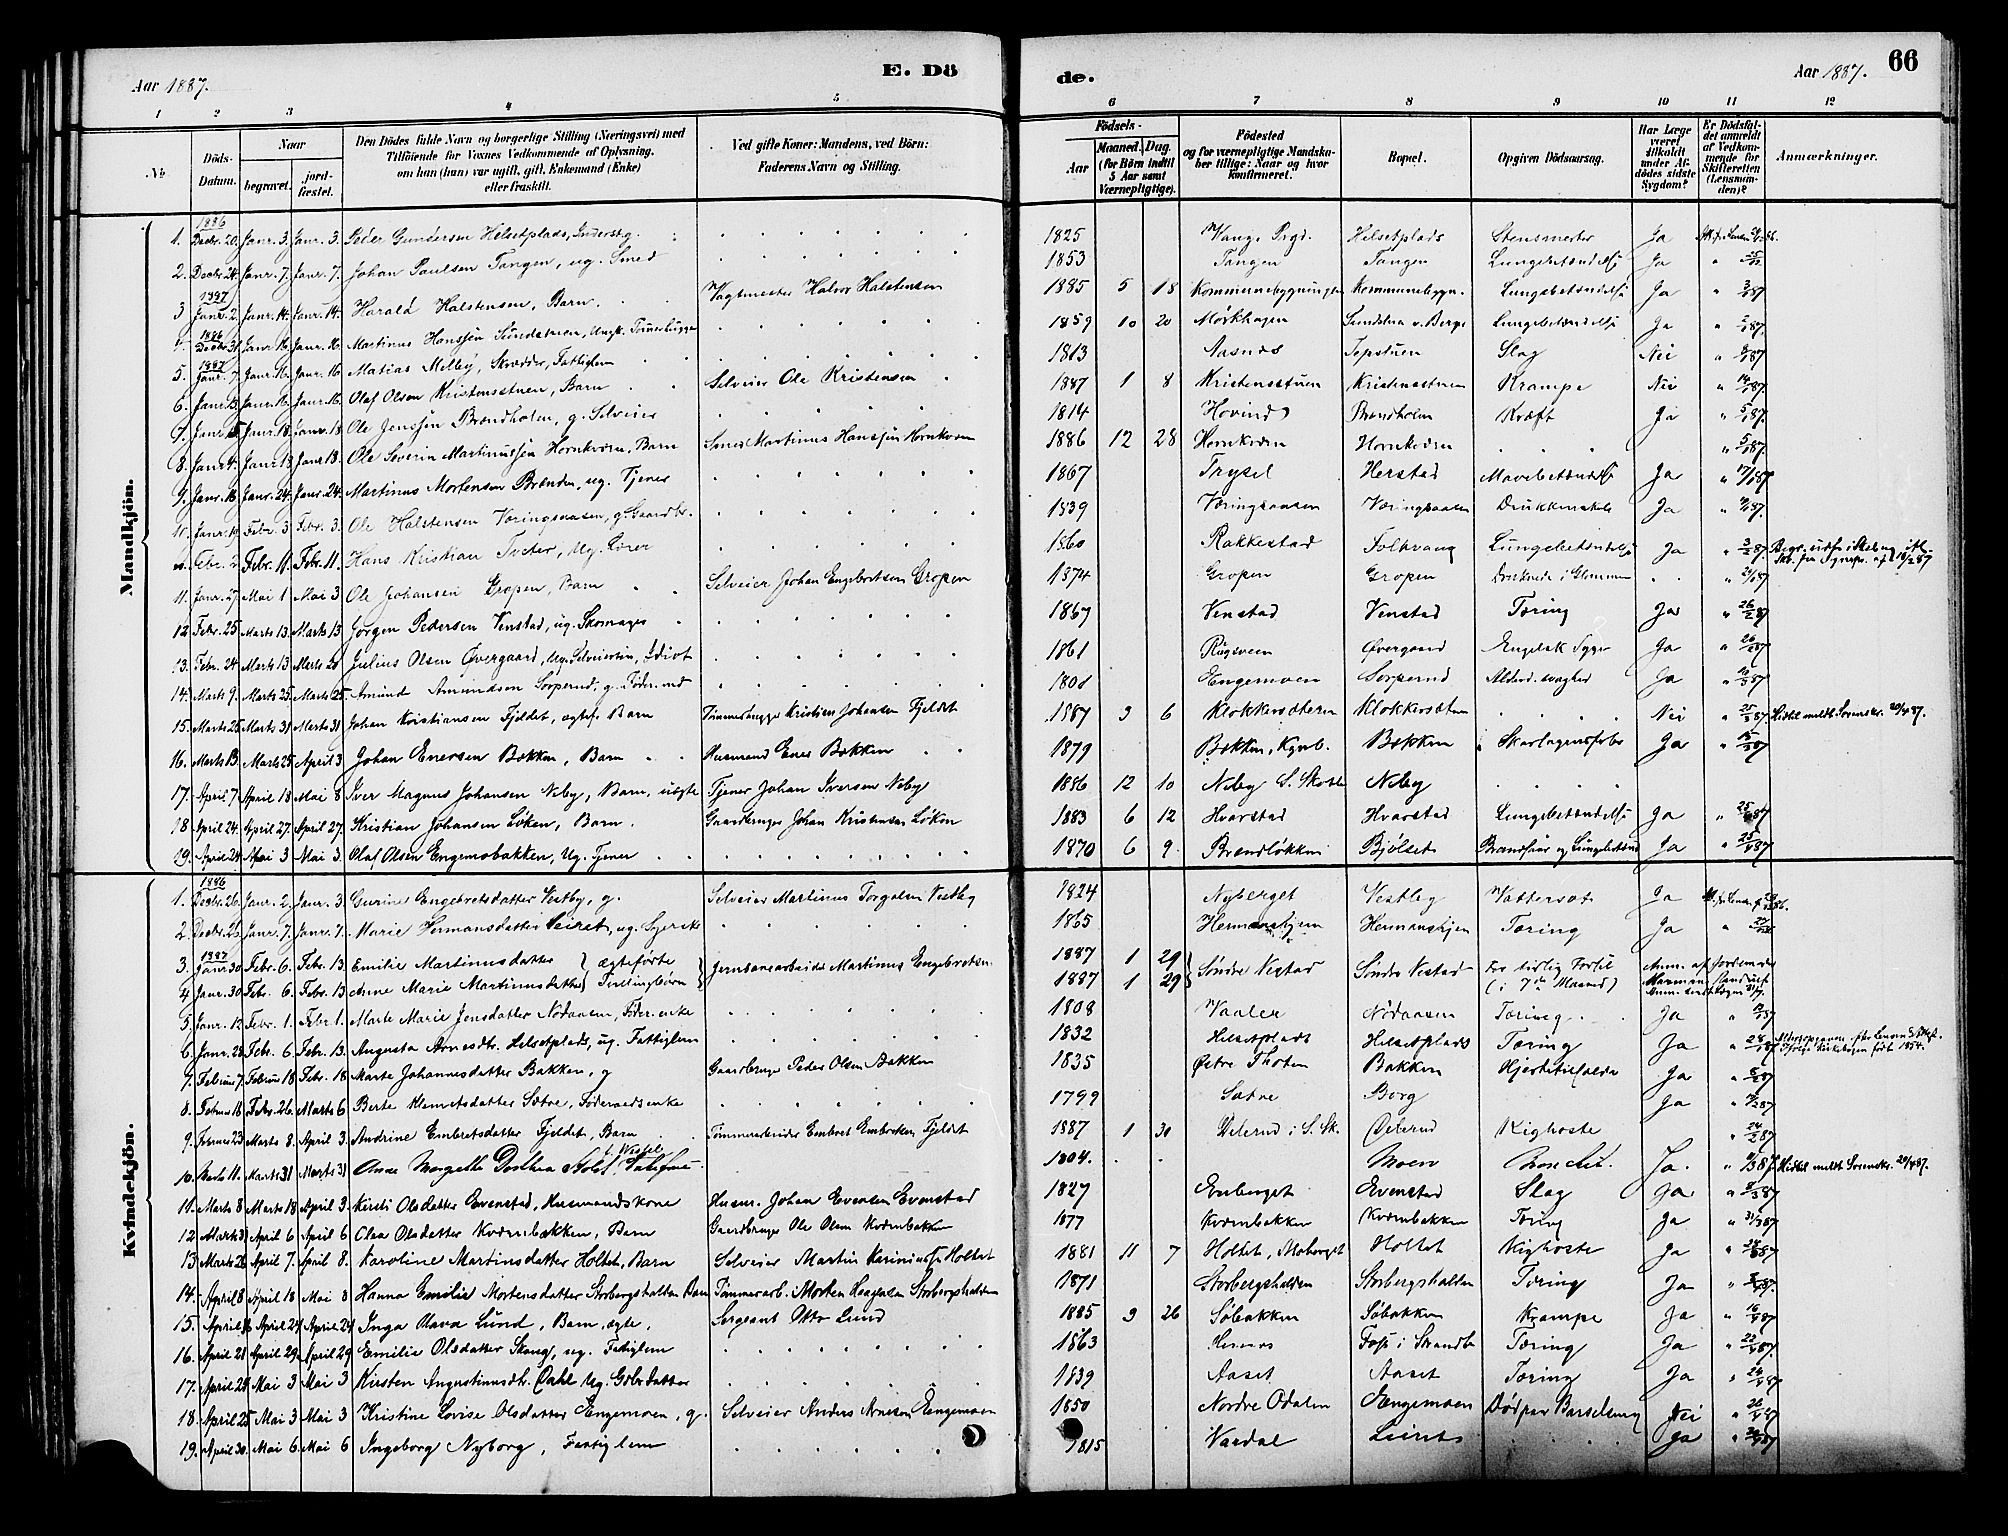 Aar 1887. E. Dö de. Aar 1887. 66
1 2 3 4 5 6 7 8 9 10 11 12
No. Döds-Datum. Naar begravet. jordfæstet. Den Dödes fulde Navn og borgerlige Stilling (Næringsvei) med Tilföiende for Voxnes Vedkommende af Oplysning, om han (hun) var ugift, gift, Enkemand (Enke) eller fraskilt. Ved gifte Koner: Mandens, ved Börn: Faderens Navn og Stilling. Födsels- Aar Maaned. Dag. (for Börn indtil 5 Aar samt Værnepligtige). Födested og for værnepligtige Mandskaber tillige: Naar og hvor konfirmeret. Bopæl. Opgiven Dödsaarsag. Har Læge været tilkaldt under Afdödes sidste Sygdom? Er Dödsfaldet anmeldt af Vedkommende for Skifteretten (Lensmanden)? Anmærkninger.
Mandkjön.
1. 1886 Decbr. 20. Janr. 3. Janr. 3. Peder Gundersen Helsetplads, Inderstg. 1825 Vang Prgd. Helsetplads Stensmerter Ja
2. Decbr. 24. Janr. 7. Janr. 7. Johan Paulsen Tangen, ug. Smed 1853 Tangen Tangen Lungebetændelse Ja
3 1887 Janr. 2. Janr. 14. Janr. 14. Harald Halstensen, Barn. Vagtmester Halvor Halstensen 1885 5 18 Kommunebygningen Kommunebygn. Lungebetændelse Ja
4. 1886 Decbr. 31. Janr. 16. Janr. 16. Martinus Hanssen Sundstuen, Ungk. Tømmerhugger 1859 10 20 Mørkhagen Sundstuen v. Berge Lungebetændelse Ja
5. 1887 Janr. 7. Janr. 16. Janr. 16. Matias Melby, Skrædder, Fattiglem 1813 Aasnes Topstuen Slag Nei
6. Janr. 13. Janr. 16. Janr. 16. Olaf Olsen Kristensstuen, Barn Selveier Ole Kristensen 1887 1 8 Kristensstuen Kristensstuen Krampe Nei
7. Janr. 5. Janr. 18. Janr. 18 Ole Jenssen Brændholen, g. Selveier 1814 Hovind Brændholen Kræft Ja
8. Janr. 4. Janr. 13 Janr. 13. Ole Severin Martinussen Hornkværn, Barn Smed Martinus Hanssen Hornkværn 1886 12 28 Hornkværn Hornkværn
9. Janr. 16. Janr. 24. Janr. 24. Martinus Mortensen Brænden, ug. Tjener 1867 Trysel Herstad Mavebetændelse Ja
11. Janr. 19. Febr. 3 Febr. 3. Ole Halstensen Væringsaasen, g. Gaardbr. 1839 Væringsaasen Væringsaasen Drukkenskab Ja
10. Febr. 2. Febr. 11. Febr. 11. Hans Kristian Tveter, Ug. Lærer 1860 Rakkestad Folkvang Lungebetændelse Ja
11. Janr. 27. Mai 1 Mai 3 Ole Johansen Gropen, Barn Selveier Johan Engebretsen Gropen 1874 Gropen Gropen Druknede i Glommen
12. Febr. 25. Marts 13. Marts 13 Jørgen Pedersen Venstad, ug. Skomager 1867 Venstad Venstad Tæring Ja
13. Febr. 24. Marts 13 Marts 20 Julius Olsen Øvergaard, Ug. Selveiersøn, Idiot 1861 Rugsveen Øvergaard Engelsk Syge Ja
14. Marts 9. Marts 25. Marts 25. Amund Amundsen Sorperud, g. Føder.md 1808 Engemoen Sorperud Alderd. svaghed Ja
15. Marts 25. Marts 31 Marts 31 Johan Kristiansen Fjeldet, ægtef. Barn Tømmerhugger Kristian Johansen Fjeldet 1887 3 6 Klokkersæteren Klokkersæteren Nei Hidtil meldt Sorenskr. 20/4 87.
16. Marts 13. Marts 25 April 3 Johan Enersen Bækken, Barn Husmand Ener Bækken 1879 Bækken, Kynb. Bækken Skarlagensfeber Ja
17. April 7 April 18 Mai 8 Iver Magnus Johansen Neby, Barn, uægte Tjener Johan Iversen Neby 1886 12 10 Neby Neby
18 April 24. April 27. April 27. Kristian Johansen Løken, Barn. Gaardbruger Johan Kristensen Løken 1883 6 12 Hvarstad Hvarstad Lungebetændelse Ja
19. April 24. Mai 3 Mai 3. Olaf Olsen Engemobakken, Ug. Tjener 1870 6 9. Brændløkken Bjølset Brandsaar og Lungebetænd Ja
Kvindekjön.
1. 1886 Decbr. 26. Janr. 2. Janr. 3 Gurine Engebretsdatter Vestby, g. Selveier Martinus Torgalsen Vestby 1824 Nyberget Vestby Vattersot Ja
2 Decbr. 23. Janr. 7. Janr. 7. Marie Hermansdatter Leiret, ug. Syerske 1865 Hermanskjen Hermanskjen Tæring Ja
3. 1887 Janr. 30. Febr. 6. Febr. 13. Emilie Martinusdatter } ægtefødte Jernbanearbeider Martinus Engebretsen 1887 1 29 Søndre Vestad Søndre Vestad For tidlig Fødsel
4 Janr. 30. Febr. 6. Febr. 13 Anne Marie Martinusdatter } Tvillingbørn 1887 1 29 (i 7de Maaned)
5. Janr. 12 Febr. 1. Febr. 1. Marte Marie Jensdatter Nodaasen, Føder.enke 1808 Vaaler Nodaasen Tæring Ja
6. Janr. 28. Febr. 6 Febr. 13. Augusta Arnesdtr. Helsetplads, ug. Fattiglem 1832 Helsetplads Helsetplads Tæring Ja
7. Februar 7. Februar 18 Febr. 18 Marte Johannesdatter Bakken, g Gaardbruger Peder Olsen Bakken 1835 Østre Thoten Bakken Hjertetilfælde Ja
8. Februar 18 Febr. 26. Marts 6 Berte Klemetsdatter Sætre, Føderaadsenke 1799 Sætre Borg Ja
9. Februar 23 Marts 8. April 3. Andrine Embretsdatter Fjeldet, Barn Tømmerarbeider Embret Embretsen Fjeldet 1887 1 30 Øderud i S. Sk. Øderud Kighoste
10. Marts 11. Marts 31 Marts 31 Anne Margrethe Dorthea Holst f. Wessel 1804. Moen Bronchit. Ja. Hidtil meldt Sorenskr. 20/4 87.
11. Marts 8 Marts 18 April 3. Kirsti Olsdatter Evenstad, Husmandskone Husm. Johan Evensen Evenstad 1827 Enberget Evenstad Slag Ja
12 Marts 31 April 6 April 6 Olea Olsdatter Kværnbækken, Barn Gaardbruger Ole Olsen Kværnbækken 1877 Kværnbækken Kværnbækken Tæring Ja
13 Marts 26 April 7. April 8. Karoline Martinsdatter Holtet, Barn Selveier Martin Holtet 1881 11 7 Holtet, Moberget Holtet Kighoste Ja
14. April 8 April 18 Mai 8 Hanna Emilie Mortensdatter Storbergshalten Barn Tømmerarb. Morten Haagensen Storbergshalden 1871 Storbergshalden Storbergshalten Tæring Ja
15. April 16 April 24 April 24 Inga Olava Lund, Barn, ægte, Sergeant Otto Lund 1885 3 26 Søbakken Søbakken Krampe Ja
16. April 21 April 29. April 29 Emilie Olsdatter Skaug, ug. Fattiglem 1863 Foss i Strandb Tæring Ja
17. April 25 Mai 3 Mai 3 Kirsten Augustinusdtr. Dahl Ug. Gbr.datter 1839 Aaset Aaset Tæring Ja
18. April 25 Mai 3 Mai 3 Kristine Lovise Olsdatter Engemoen, g. Selveier Anders Arnesen Engemoen 1850 Nordre Odalen Engemoen Død paa Barselseng Nei
19. April 30. Mai 6. Mai 6 Ingeborg Nyborg, Fattiglem 1815 Vardal Leiret Ja